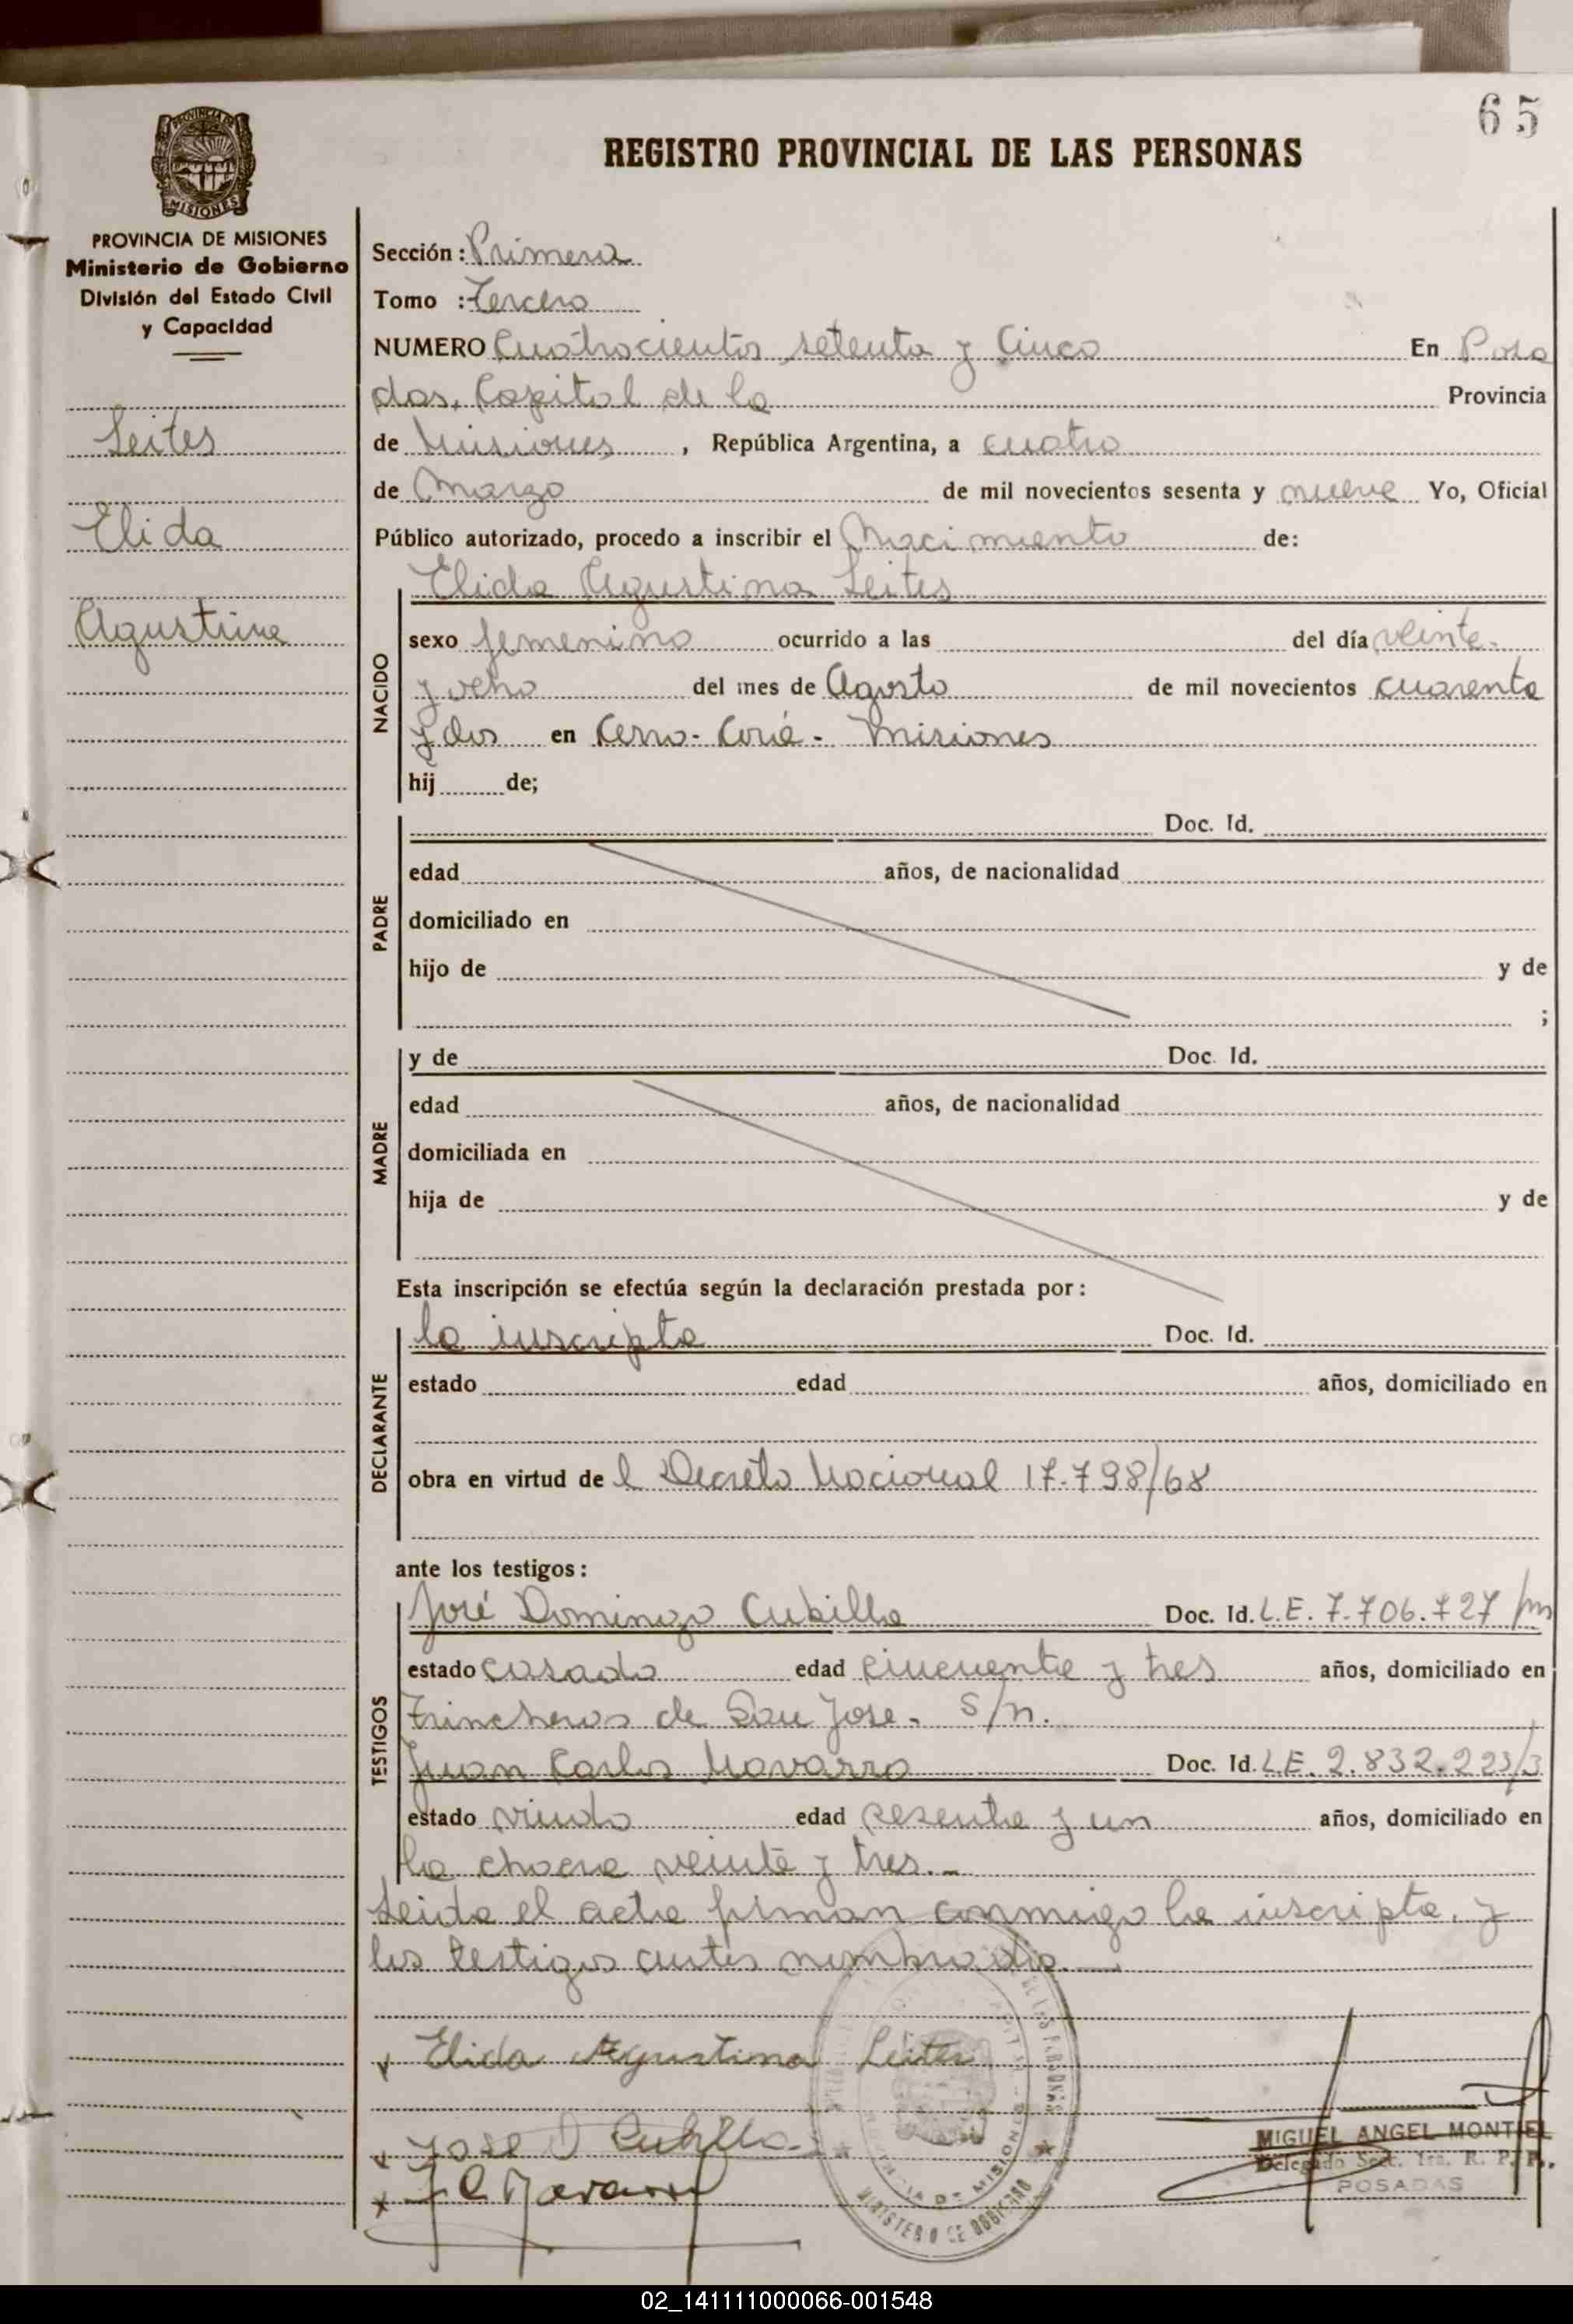 65
REGISTRO PROVINCIAL DE LAS PERSONAS
PROVINCIA DE MISIONES
Ministerio de Gobierno
División del Estado Civil
y Capacidad
Leites
Elida
Agustina
Sección: Primera
Tomo : Tercero
NUMERO Cuatrocientos setenta y Cinco En Posa
das. Capital de la Provincia
de Misiones, República Argentina, a cuatro
de Marzo de mil novecientos sesenta y nueve Yo, Oficial
Público autorizado, procedo a inscribir el Nacimiento de:
NACIDO
Elida Agustina Leites
sexo femenino ocurrido a las del día veinte-
y ocho del mes de Agosto de mil novecientos cuarenta
y dos en Cerro-Corá- Misiones
hij de;
PADRE
Doc. Id.
edad años, de nacionalidad
domiciliado en
hijo de y de
;
MADRE
y de Doc. Id.
edad años, de nacionalidad
domiciliada en
hija de y de
Esta inscripción se efectúa según la declaración prestada por:
DECLARANTE
la inscripta Doc. Id.
estado edad años, domiciliado en
obra en virtud de l Decreto Nacional 17.798/68
ante los testigos:
TESTIGOS
José Domingo Cubilla Doc. Id. L.E. 7.706.727
estado casado edad cincuenta y tres años, domiciliado en
Trincheras de San Jose. S/n.
Juan Carlos Navarro Doc. Id. L.E. 2.832.223
estado viudo edad sesenta y un años, domiciliado en
la chacra veinte y tres.-
Leida el acta firman conmigo la inscripta, y
los testigos antes nombrados.
Elida Agustina Leites
Jose D Cubilla
J C Navarro
MINISTERIO DE GOBIERNO
MIGUEL ANGEL MONTIEL
Delegado Secc. 1ra. R. P. P.
POSADAS
02_141111000066-001548